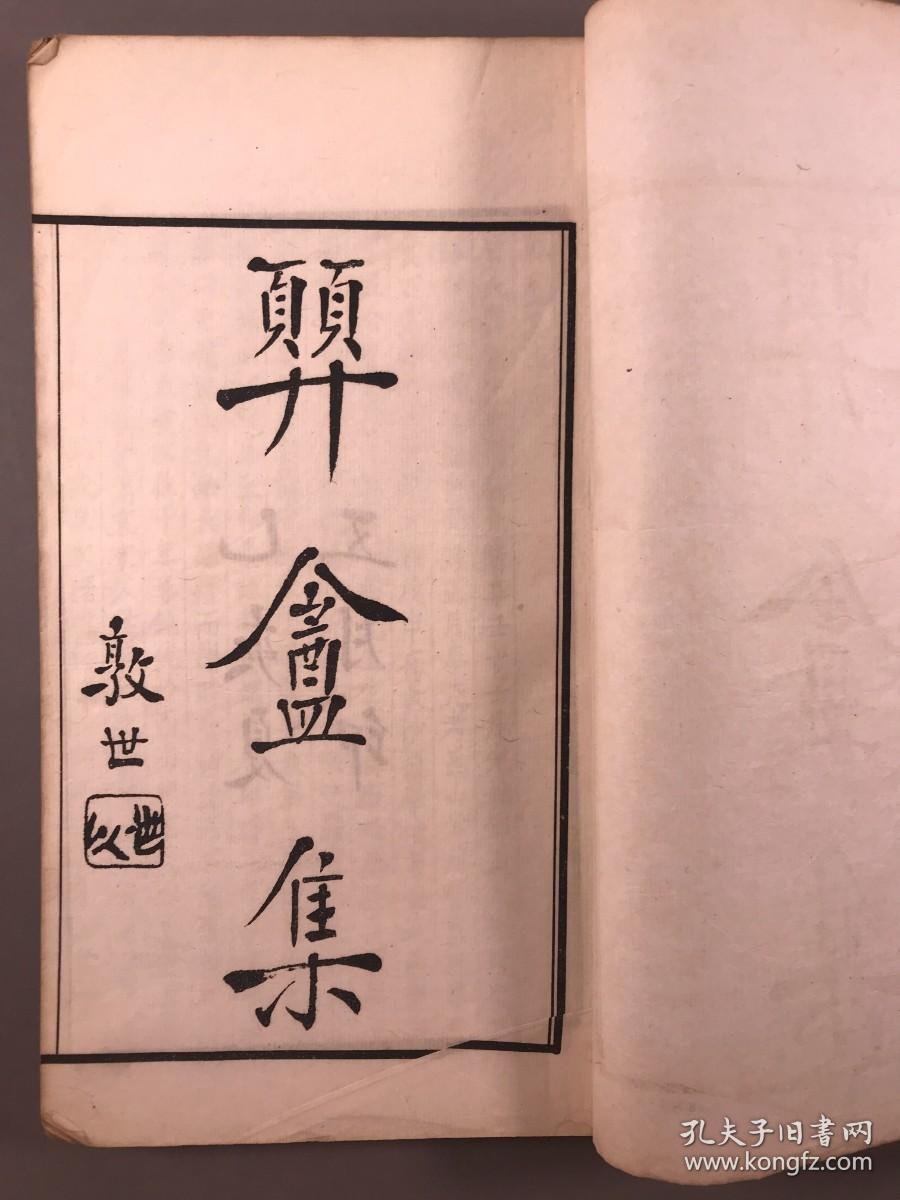 顨盦集
敦世
孔夫子旧書网
www.kongfz.com